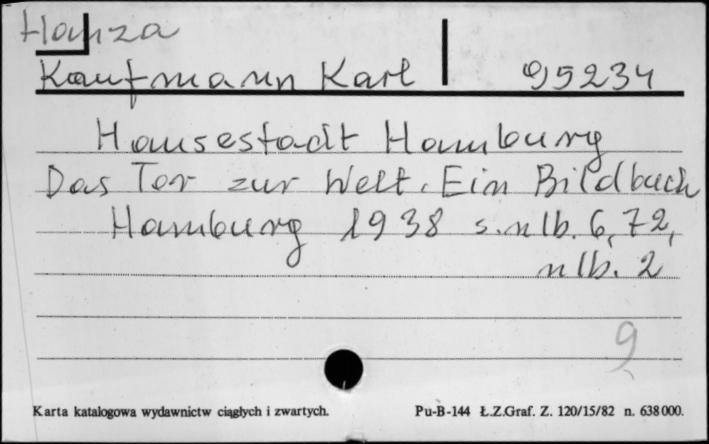 Hanza
Kaufmann Karl 95234
Hansestadt Hamburg
Das Tor zur Welt. Ein Bildbuch
Hamburg 1938 s. nlb. 6, 72,
nlb. 2
9
Karta katalogowa wydawnictw ciągłych i zwartych. Pu-B-144 Ł.Z.Graf. Z. 120/15/82 n. 638000.